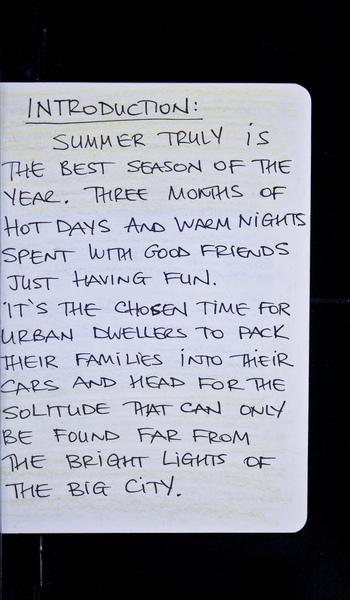 INTRODUCTION:
SUMMER TRULY IS
THE BEST SEASON OF THE
YEAR. THREE MONTHS OF
HOT DAYS AND WARM NIGHTS
SPENT WITH GOOD FRIENDS
JUST HAVING FUN.
IT'S THE CHOSEN TIME FOR
URBAN DWELLERS TO PACK
THEIR FAMILIES INTO THEIR
CARS AND HEAD FOR THE
SOLITUDE THAT CAN ONLY
BE FOUND FAR FROM
THE BRIGHT LIGHTS OF
THE BIG CITY.